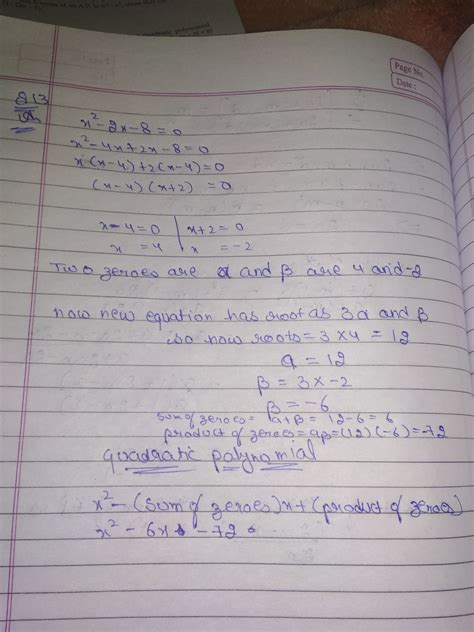 Page No.
Date :
Q 13
x² - 2x - 8 = 0
x² - 4x + 2x - 8 = 0
x (x-4) + 2 (x-4) = 0
(x-4) (x+2) = 0
x - 4 = 0 | x + 2 = 0
x = 4 | x = -2
Two zeroes are α and β are 4 and -2
now new equation has root as 3α and β
so now roots = 3 × 4 = 12
α = 12
β = 3 × -2
β = -6
sum of zeroes = α + β = 12 - 6 = 6
product of zeroes = αβ = (12) (-6) = -72
quadratic polynomial
x² - (sum of zeroes) x + (product of zeroes)
x² - 6x - 72